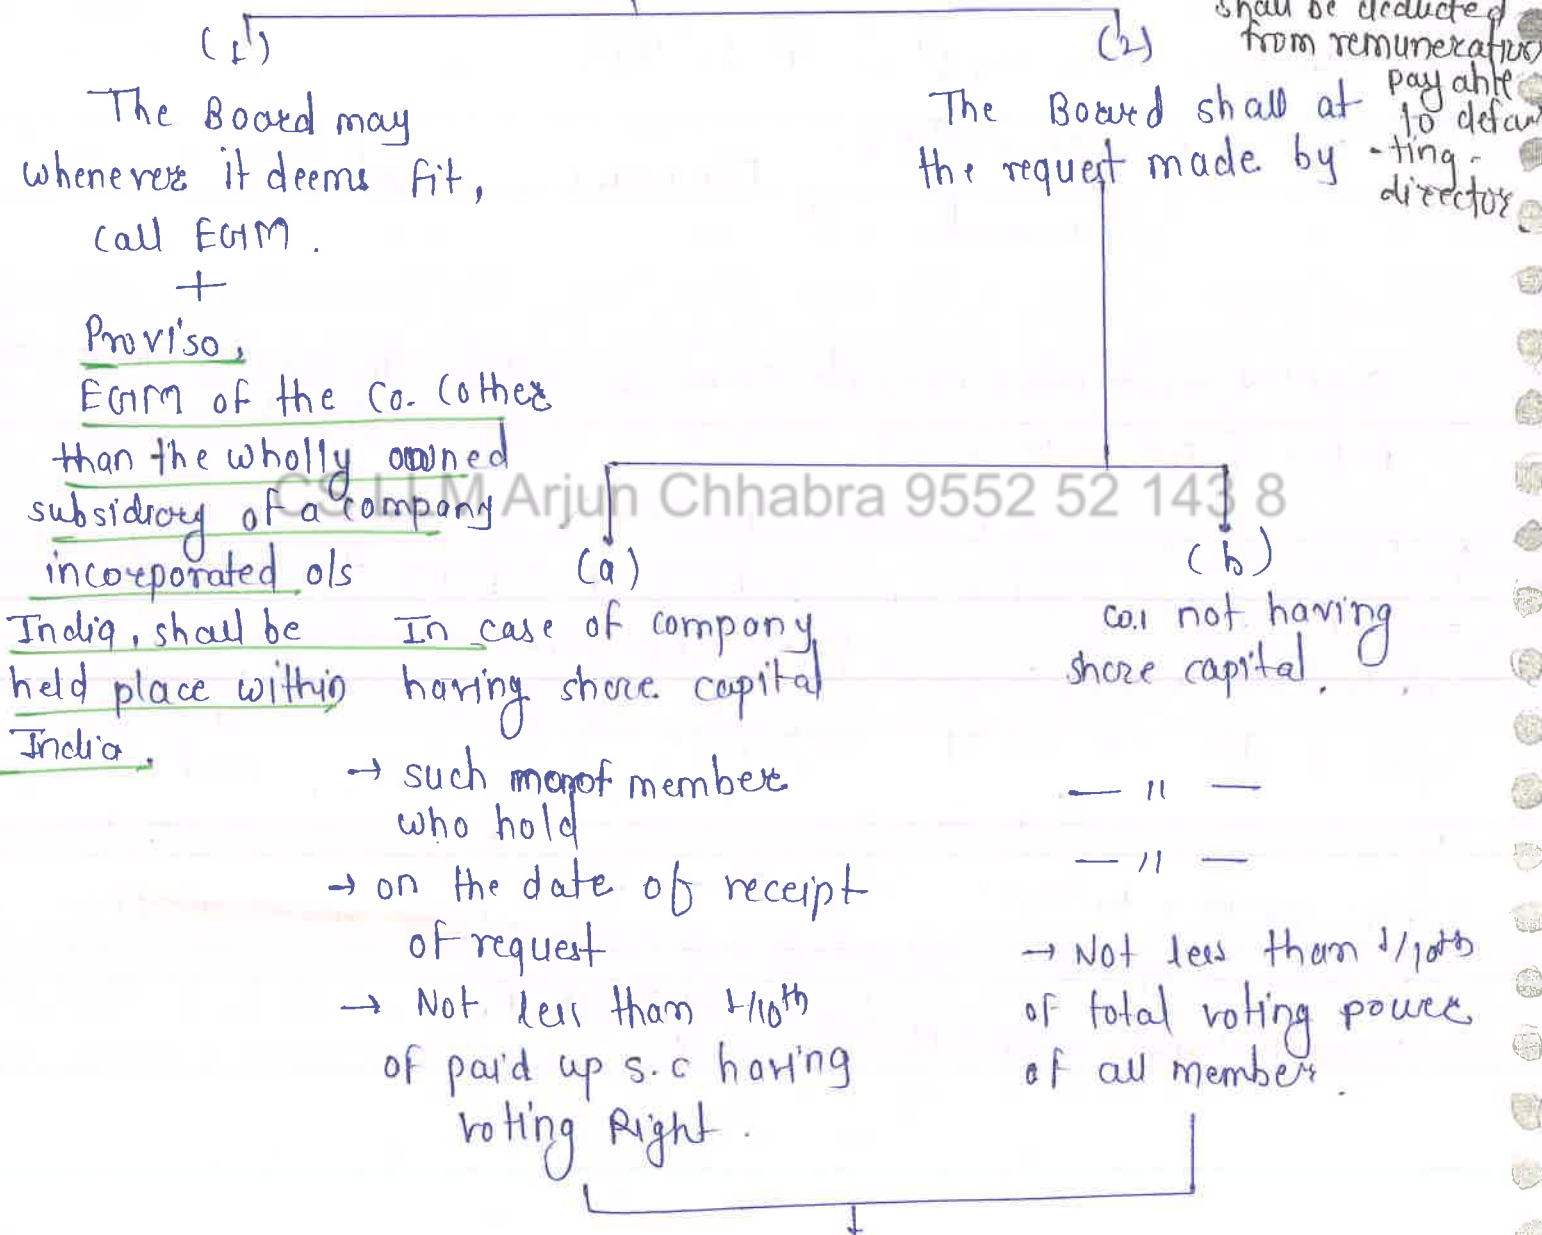 (1)
The Board may
whenever it deems fit,
call EGM.
+
Proviso,
EGM of the Co. (other
than the wholly owned
subsidiary of a company
incorporated o/s
India, shall be
held place within
India.
(2)
The Board shall at
the request made by
shall be deducted
from remuneration
payable
to defau
-ting
director
CS LLM Arjun Chhabra 9552 52 143 8
(a)
In case of company
having share capital
→ such no. of member
who hold
→ on the date of receipt
of request
→ Not less than 1/10th
of paid up s.c having
voting Right.
(b)
co. not having
share capital.
— " —
— " —
→ Not less than 1/10th
of total voting power
of all member.